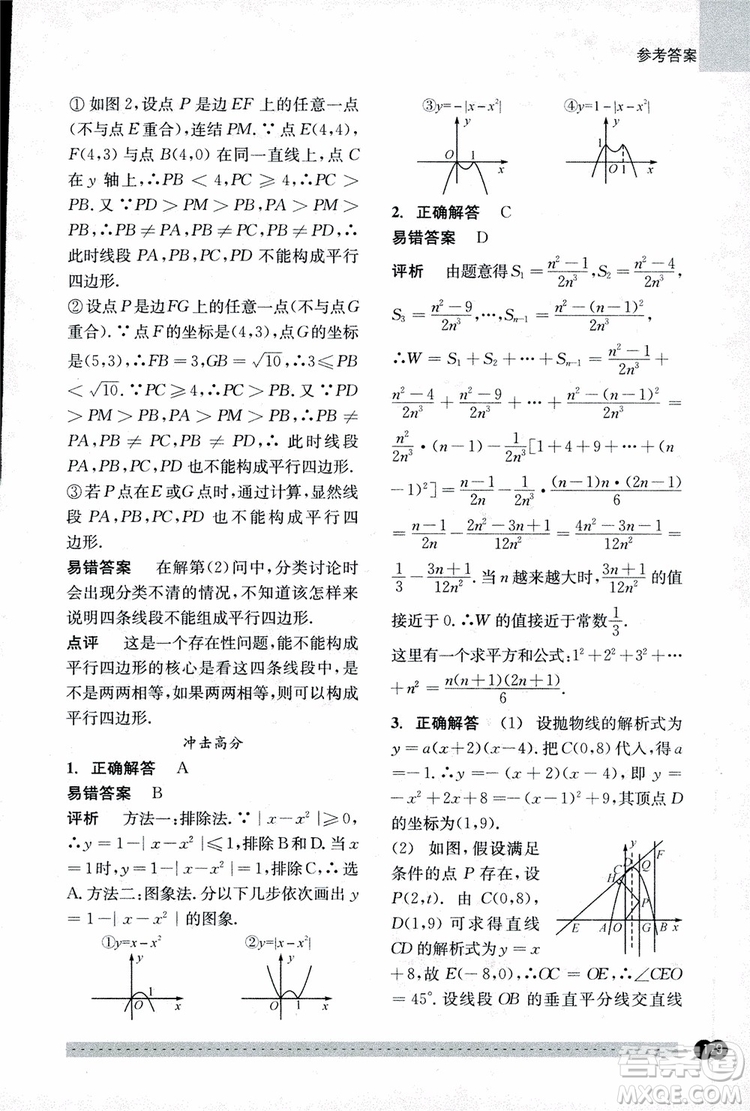 参考答案
① 如图 2，设点 P 是边 EF 上的任意一点
(不与点 E 重合)，连结 PM. ∵ 点 E(4,4)，
F(4,3) 与点 B(4,0) 在同一直线上，点 C
在 y 轴上，∴PB < 4，PC ⩾ 4，∴PC >
PB. 又 ∵PD > PM > PB，PA > PM >
PB，∴PB ≠ PA，PB ≠ PC，PB ≠ PD. ∴
此时线段 PA，PB，PC，PD 不能构成平行
四边形.
②设点 P 是边FG 上的任意一点(不与点G
重合). ∵点 F 的坐标是(4,3)，点 G 的坐标
是(5,3)，∴FB = 3，GB = √10，∴3⩽PB
< √10. ∵PC ⩾ 4，∴PC > PB. 又 ∵PD
> PM > PB，PA > PM > PB，∴PB ≠
PA，PB ≠ PC，PB ≠ PD. ∴ 此时线段
PA，PB，PC，PD 也不能构成平行四边形.
③若 P 点在E 或G 点时，通过计算，易得线
段 PA，PB，PC，PD 也不能构成平行四
边形.
易错答案 在解第(2)问中，分类讨论时
会出现分类不清的情况，不知道该怎样来
说明四条线段不能组成平行四边形.
点评 这是一个存在性问题，能不能构成
平行四边形的核心是看这四条线段中，是
不是两两相等，如果两两相等，则可以构成
平行四边形.
冲击高分
1. 正确解答 A
易错答案 B
评析 方法一:排除法. ∵| x − x² |⩾0，
∴y = 1−| x − x² |⩽1，排除 B和 D. 当 x
=1时，y = 1−| x − x² | = 1，排除C，∴选
A. 方法二:图象法. 分以下几步依次画出 y
= 1−| x − x² | 的图象.
①y=x−x² ②y=|x−x²|
y y
O 1 x O 1 x
③y=−|x−x²| ④y=1−|x−x²|
y y
O 1 x 1 O 1 x
2. 正确解答 C
易错答案 D
评析 由题意得 S₁ = (n²−1)/(2n³)，S₂ = (n²−4)/(2n³)，
S₃ = (n²−9)/(2n³)，…，Sₙ₋₁ = (n²−(n−1)²)/(2n³)，
∴W = S₁ + S₂ + … + Sₙ₋₁ = (n²−1)/(2n³) +
(n²−4)/(2n³) + (n²−9)/(2n³) + … + (n²−(n−1)²)/(2n³) =
n²/(2n³) · (n−1) − 1/(2n³)[1+4+9+…+(n
−1)²] = (n−1)/(2n) − 1/(2n³) · ((n−1)n·(2n−1))/6
= (n−1)/(2n) − (2n²−3n+1)/(12n²) = (4n²−3n−1)/(12n²) =
1/3 − (3n+1)/(12n²). 当 n 越来越大时，(3n+1)/(12n²) 的值
接近于 0. ∴W 的值接近于常数 1/3.
这里有一个求平方和公式:1²+2²+3²+…
+n² = (n(n+1)(2n+1))/6.
3. 正确解答 (1) 设抛物线的解析式为
y = a(x+2)(x−4). 把 C(0,8) 代入，得a=
−1. ∴y =−x²+2x+8 =−(x−1)²+9，即
抛物线的解析式为y=−x²+2x+8，其顶点 D
的坐标为(1,9).
(2) 如图，假设满足
条件的点 P 存在，设
P(2,t). 由 C(0,8)，
D(1,9) 可求得直线
CD 的解析式为 y = x
+8，故 E(−8,0)，∴OC = OE，∴∠CEO
= 45°. 设线段 OB 的垂直平分线交直线
D Q F
C
H
P
E A O G B x
答案圈
MXQE.COM